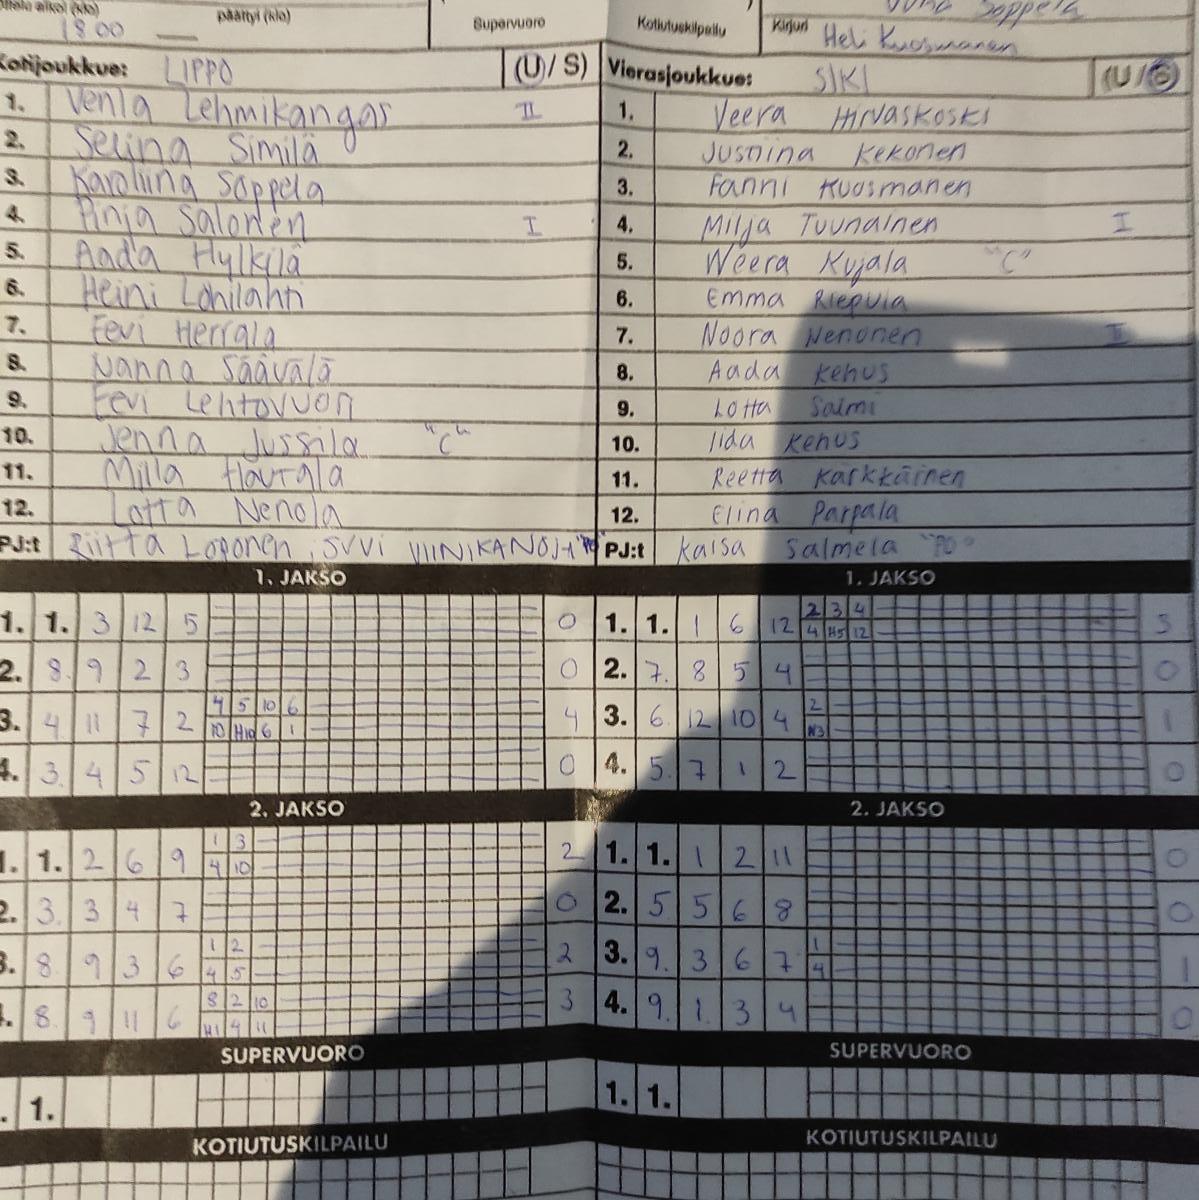 päättyi (klo)
18 00 —
Supervuoro
Kotiutuskilpailu
Kirjuri Heli Kuosmanen
Kotijoukkue: LIPPO (U/S)
1. Venla Lehmikangas II
2. Selina Similä
3. Karoliina Soppela
4. Pinja Salonen I
5. Aada Hylkilä
6. Heini Lohilahti
7. Eevi Herrala
8. Nanna Säävälä
9. Eevi Lehtovuori
10. Jenna Jussila "C"
11. Milla Hautala
12. Lotta Nenola
PJ:t Riitta Loponen, SUVI VIINIKANOJA "PO"
Vierasjoukkue: SIKI (U/S)
1. Veera Hirvaskoski
2. Justiina Kekonen
3. Fanni Kuosmanen
4. Milja Tuunainen I
5. Weera Kujala "C"
6. Emma Riepula
7. Noora Nenonen II
8. Aada Kehus
9. Lotta Salmi
10. Iida Kehus
11. Reetta Kärkkäinen
12. Elina Parpala
PJ:t Kaisa Salmela "PO"
1. JAKSO
1. 1. 3 12 5 0
2. 8. 9 2 3 0
4 5 10 6
3. 4 11 7 2 4
10 H10 6 1
4. 3. 4 5 12 0
1. JAKSO
2 3 4
1. 1. 1 6 12 3
4 H5 12
2. 7. 8 5 4 0
2
3. 6. 12 10 4 1
H3
4. 5. 7 1 2 0
2. JAKSO
1 3
1. 1. 2 6 9 2
4 10
2. 3. 3 4 7 0
1 2
3. 8. 9 3 6 2
4 5
8 2 10
. 8. 9 11 6 3
H1 9 11
2. JAKSO
1. 1. 1 2 11 0
2. 5 5 6 8 0
1
3. 9. 3 6 7 1
4
4. 9. 1. 3 4 0
SUPERVUORO
. 1.
SUPERVUORO
1. 1.
KOTIUTUSKILPAILU
KOTIUTUSKILPAILU